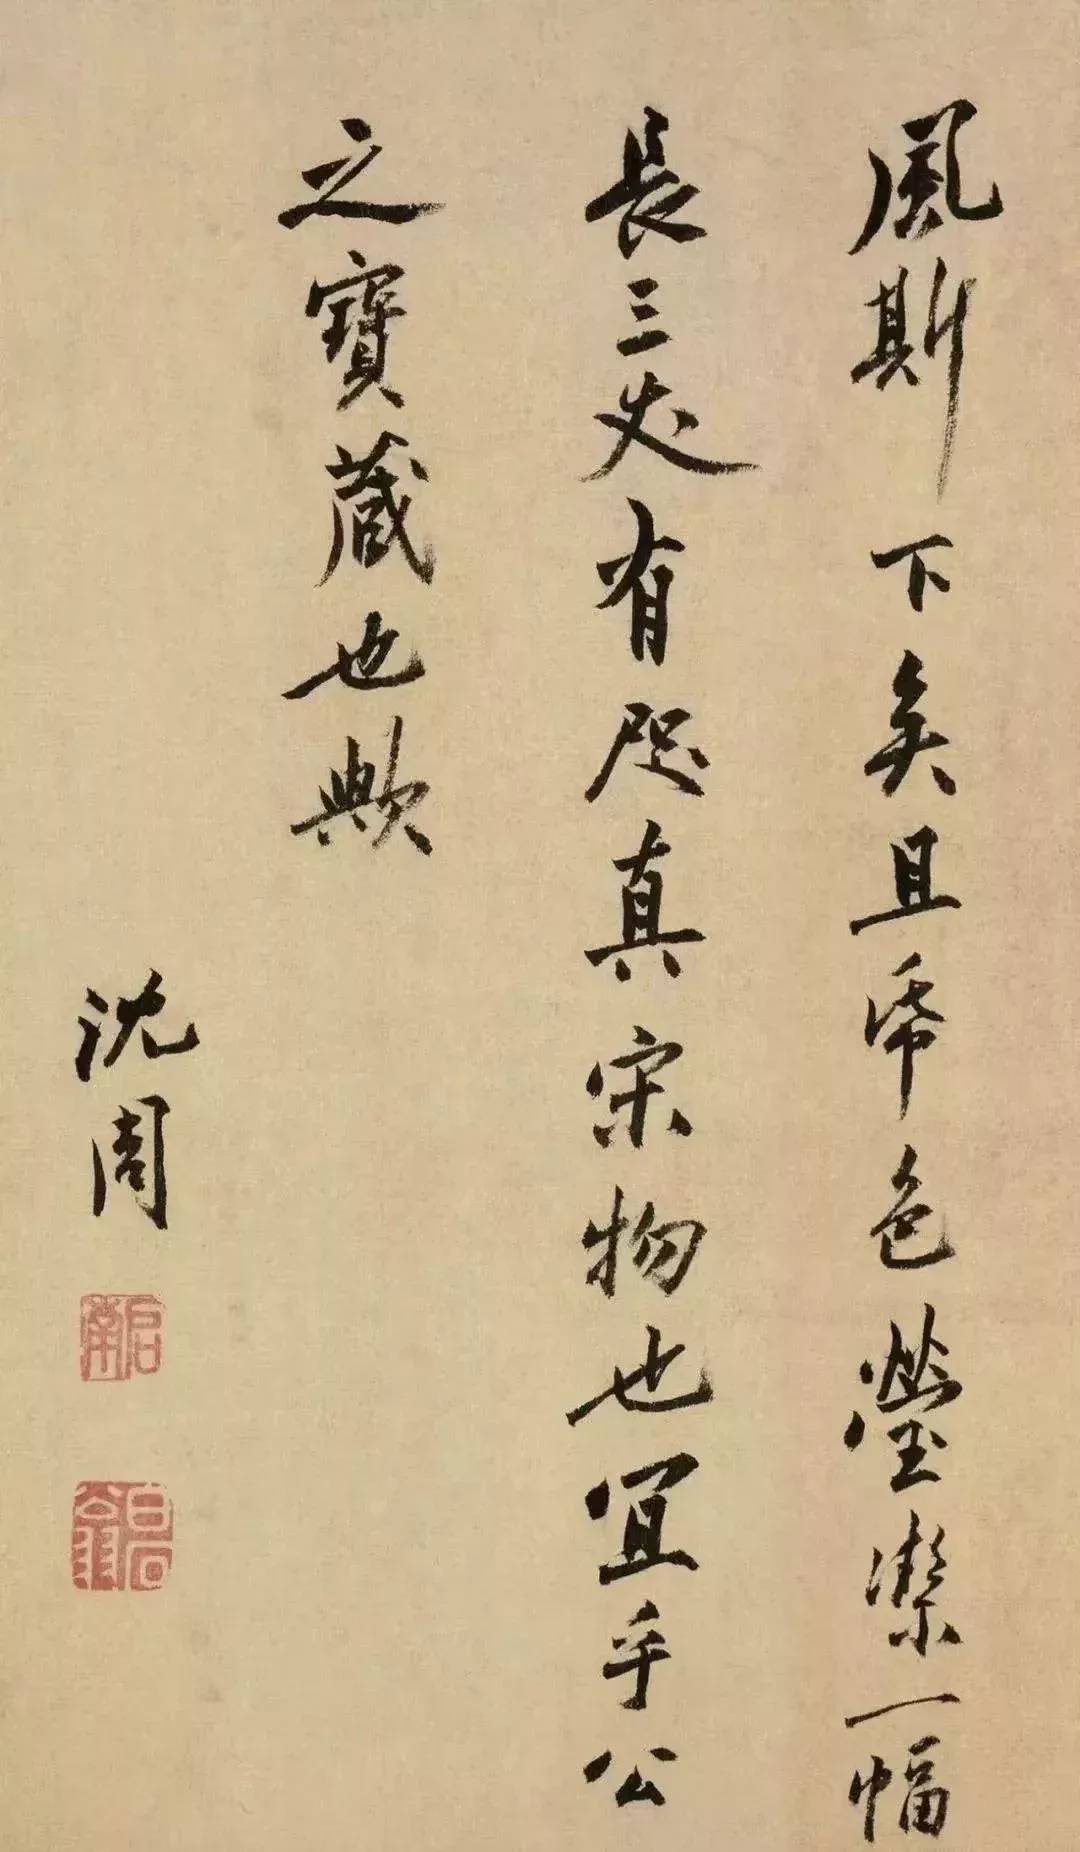 風斯下矣且帋色瑩潔一幅
長三丈有咫真宋物也宜乎公
之寶蔵也歟
沈周
啓南
白石翁